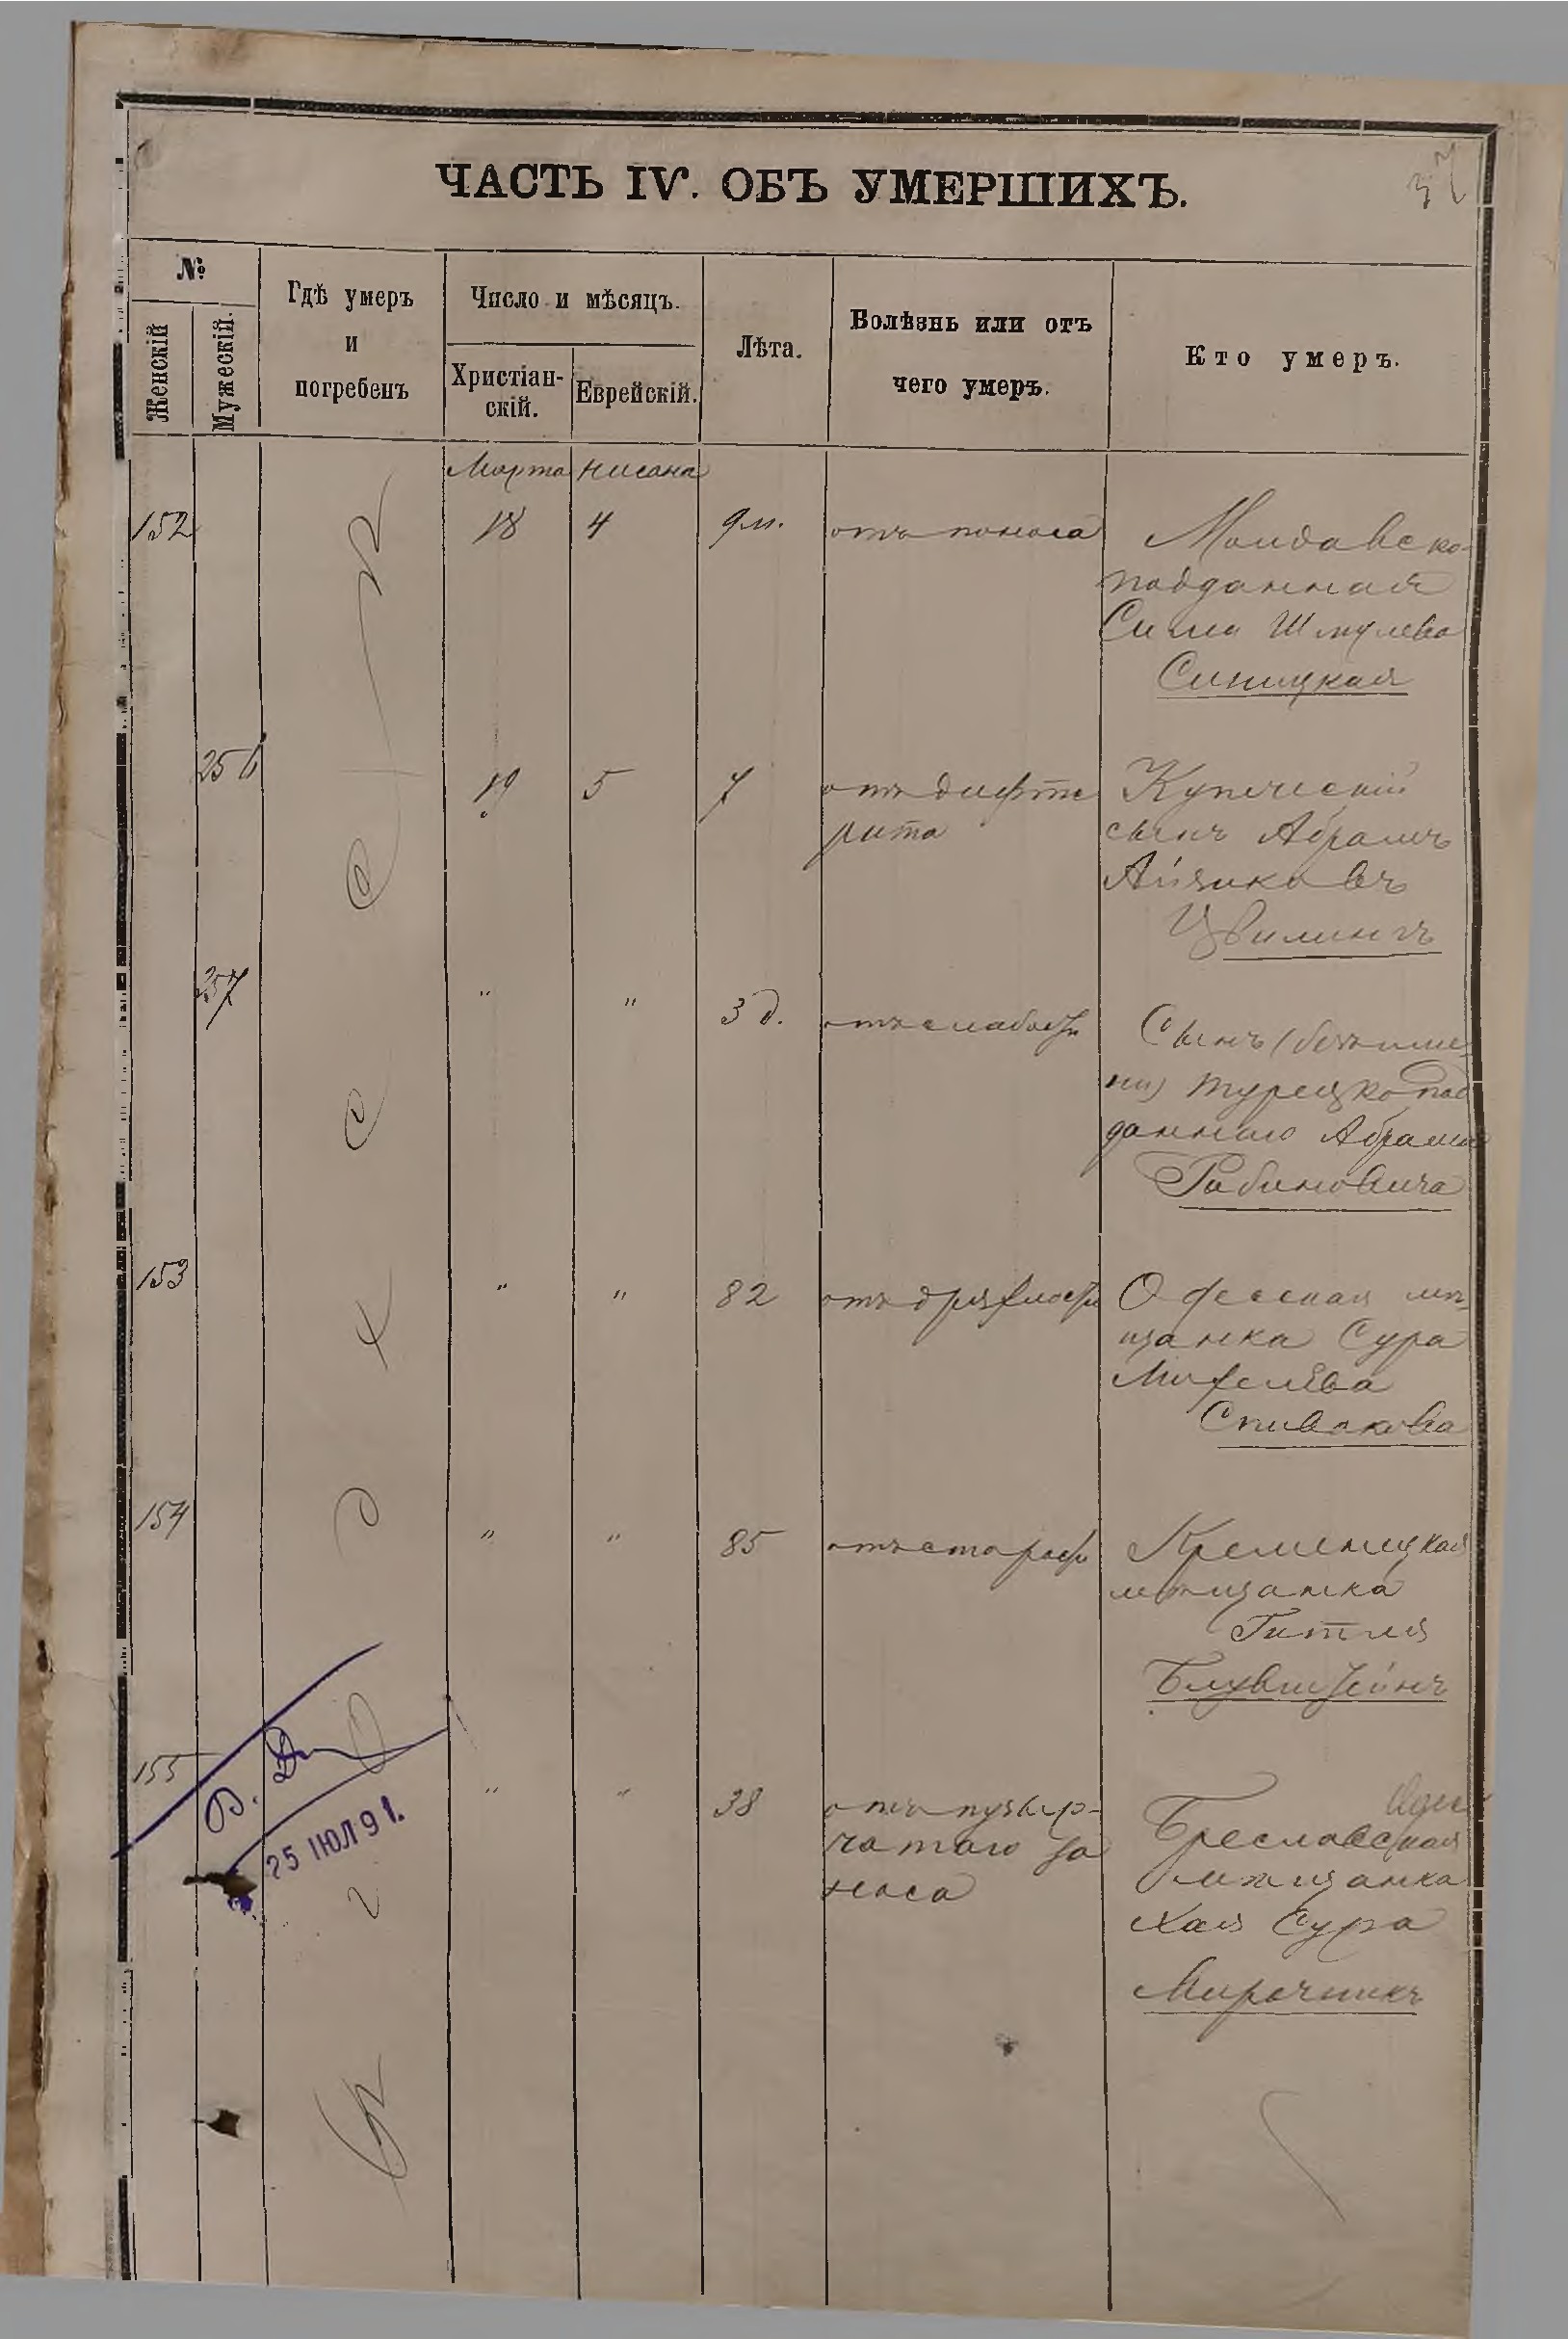 37
ЧАСТЬ IV. ОБЪ УМЕРШИХЪ.
№
Женскій
Мужескій.
Гдѣ умеръ
и
погребенъ
Число и мѣсяцъ.
Христіан-
скій.
Еврейскій.
Лѣта.
Болѣзнь или отъ
чего умеръ.
Кто умеръ.
Марта Нисана
152 18 4 9 м. отъ поноса Молдавско-
подданная
Сима Шмулева
Синицкая
256 19 5 7 отъ дифте Купеческій
рита сынъ Абрамъ
Айзиковъ
Цвилингъ
257 " " 3 д. отъ слабости Сынъ (безъ име-
ни) турецкопод
даннаго Абрама
Рабиновича
153 " " 82 отъ дряхлости Одесская мѣ-
щанка Сура
Спивакова
154 " " 85 отъ старости Кременецкая
мѣщанка
Гитля
Блувштейнъ
155 " " 38 отъ пузыр-
чатаго за
носа
Бреславская
мѣщанка
Хая Сура
Мирочникъ
В Одессѣ
25 ІЮЛ 91.